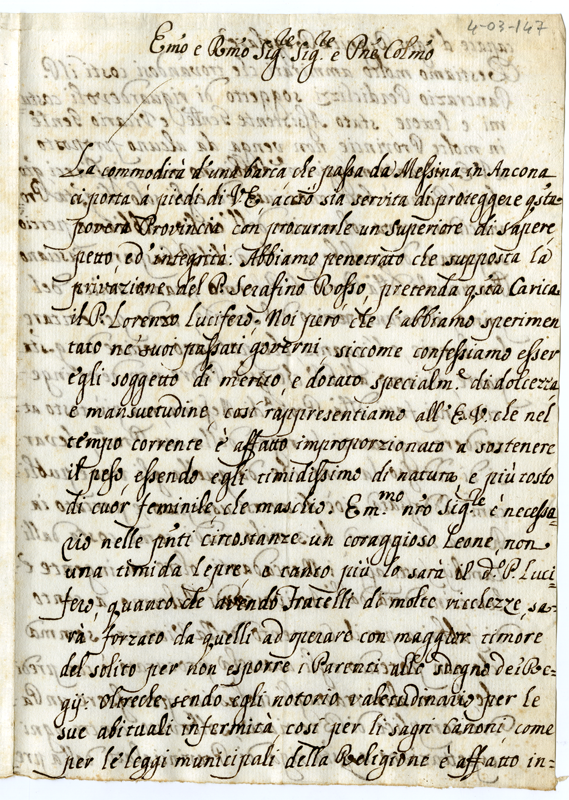 4-03-147
Emo e Rmo Sig.re Sig.re e Pne Colmo
La commodità d'una barca che passa da Messina in Ancona
ci porta à piedi di V.E. acciò sia servita di proteggere qsta
povera Provincia con procurarle un superiore di sapere
petto ed' integrità: Abbiamo penetrato che supposta la
privazione del P. Serafino Bosso, pretenda qsta Carica
il P. Lorenzo Lucifero. Noi però che l'abbiamo sperimen
tato ne' suoi passati governi, siccome confessiamo esser
egli soggetto di merito, e dotato specialm.e di dolcezza
e mansuetudine, così rappresentiamo all' E.V. che nel
tempo corrente è affatto improporzionato a sostenere
il peso essendo egli timidissimo di natura, e più tosto
di cuor feminile che maschio. Em.mo nro Sig.re è necessa-
rio nelle pnti circostanze un coraggioso Leone, non
una timida lepre, e tanto più lo sarà il d.o P. Luci-
fero, quanto che avendo Fratelli di molte ricchezze, sa-
rà forzato da quelli ad operare con maggior timore
del solito per non esporre i Parenti allo sdegno dei Re-
gij. Oltreche sendo egli notorio valetudinario per le
sue abituali infermità così per li sagri Canoni, come
per le leggi municipali della Religione è affatto in-